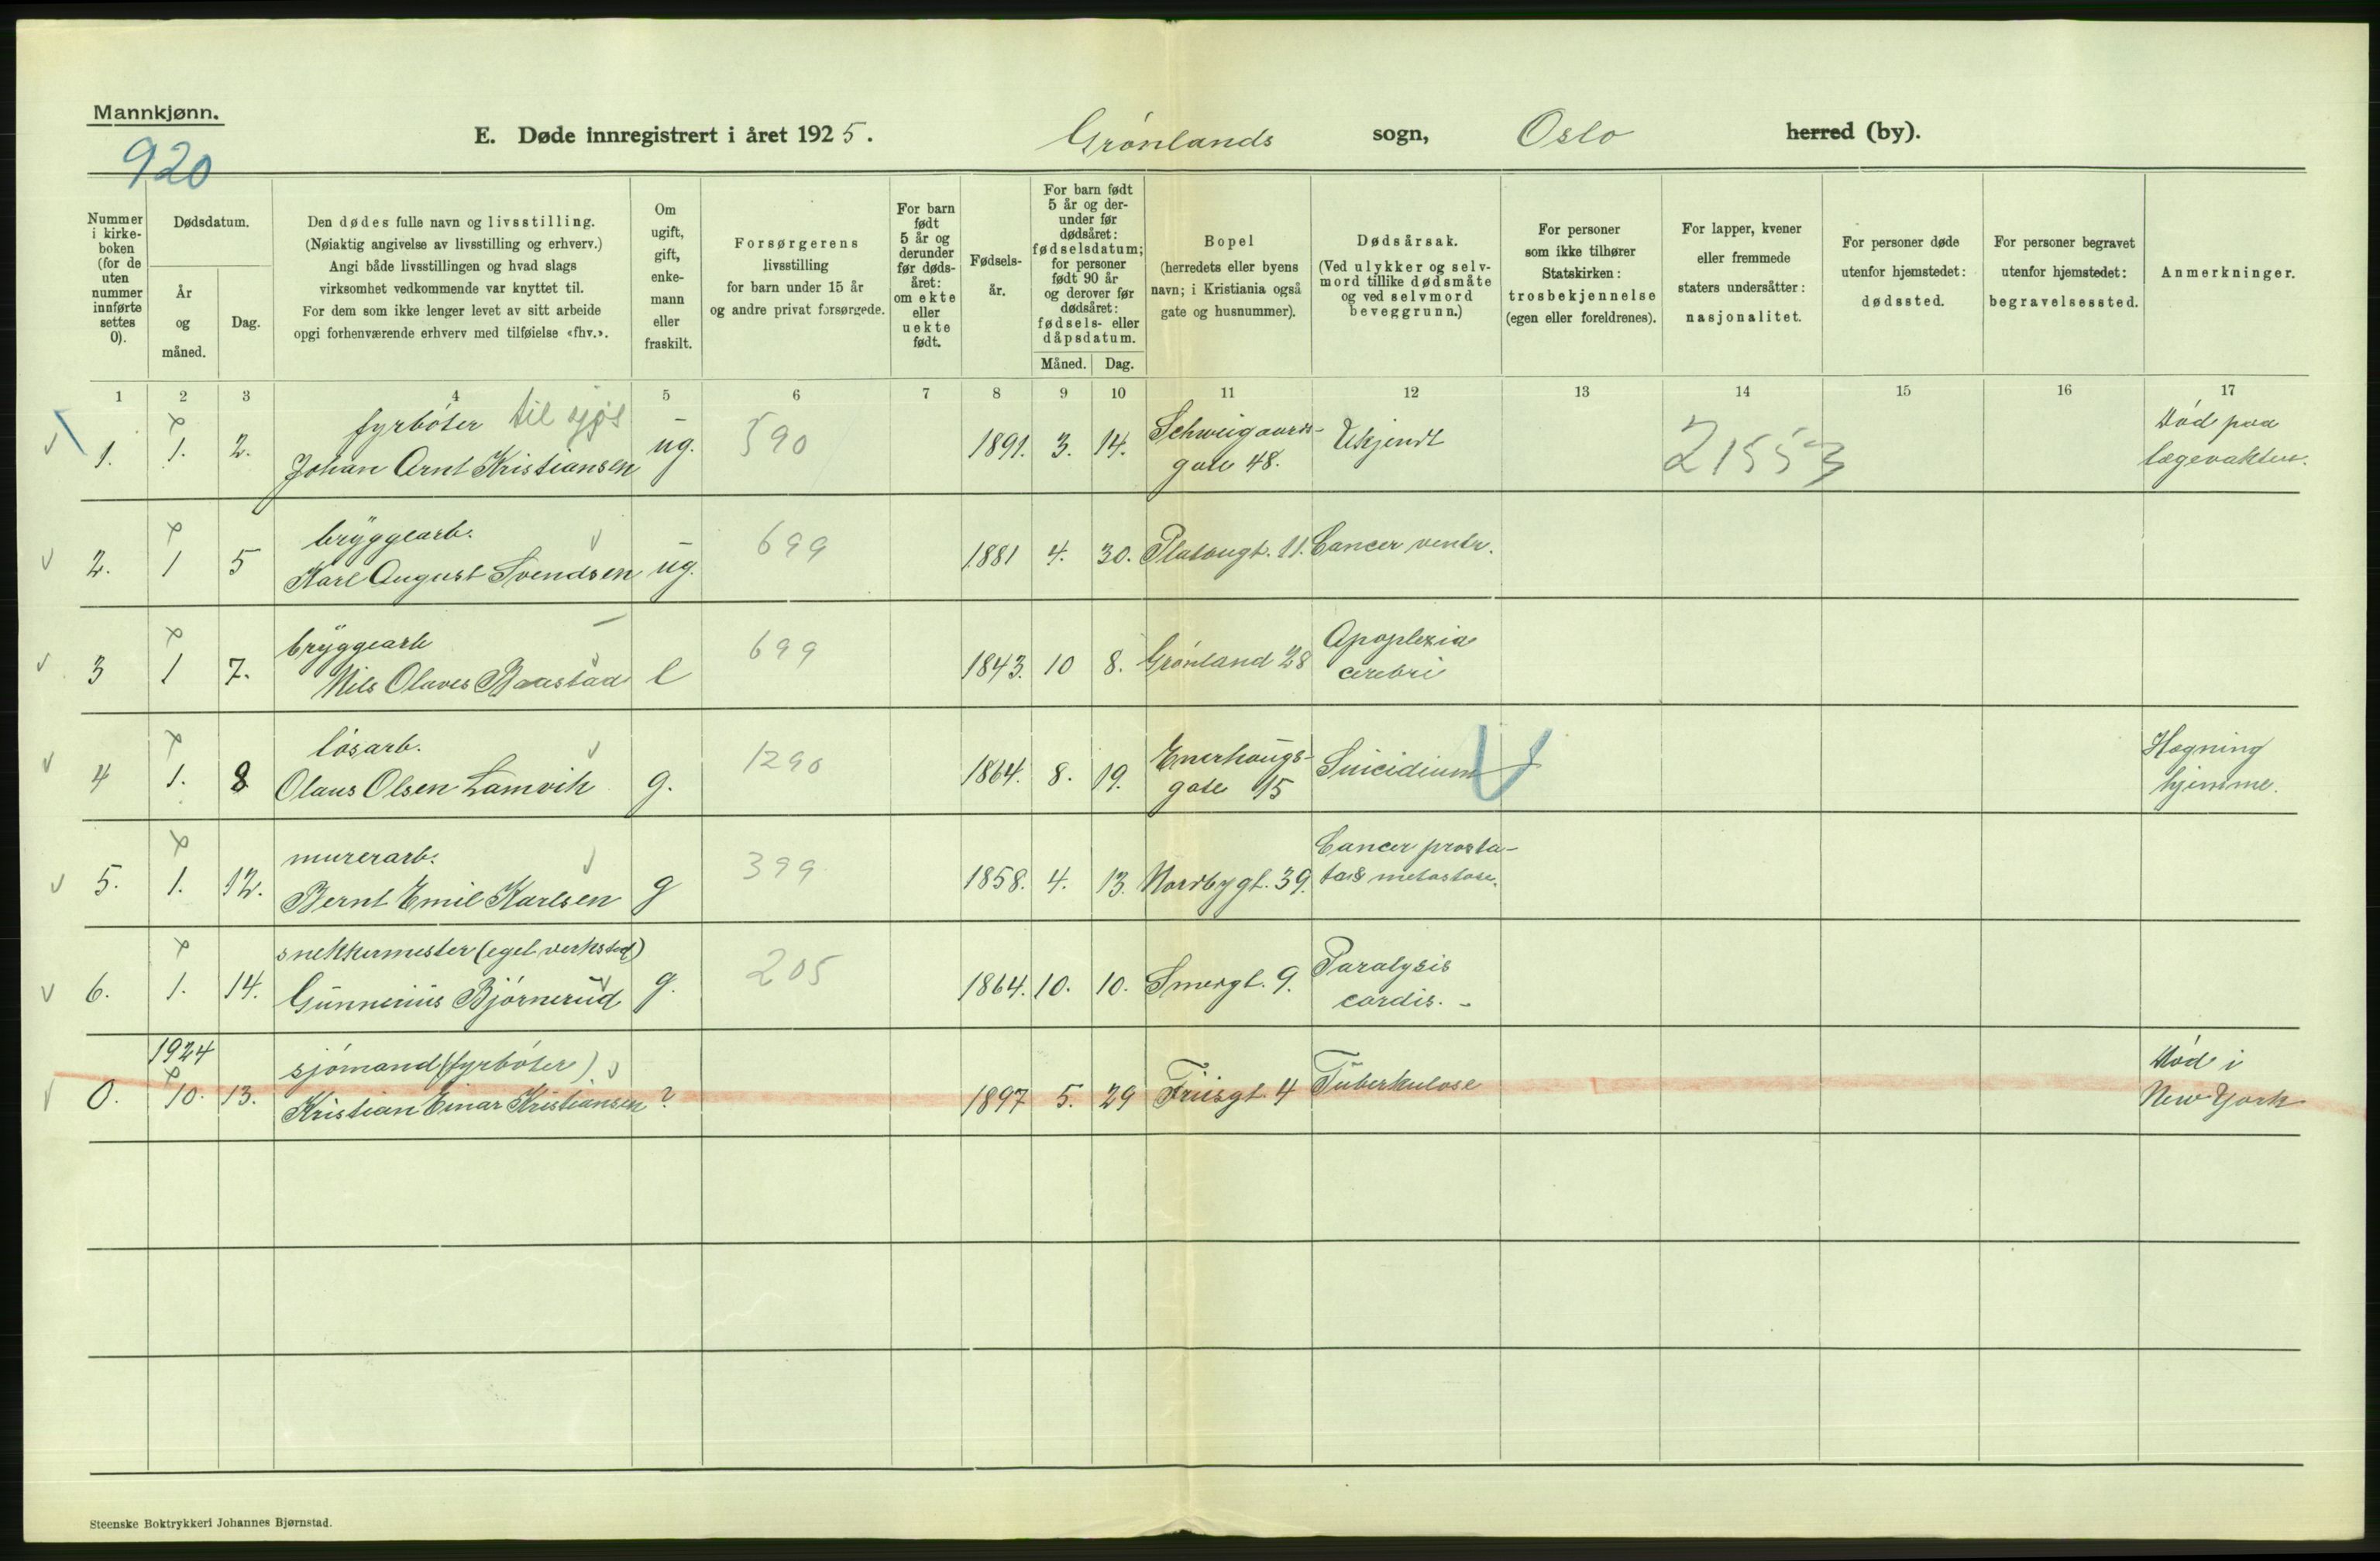 Mannkjønn.
920
E. Døde innregistrert i året 1925. Grønlands sogn, Oslo herred (by).
Nummer i kirke-boken (for de uten nummer innførte settes 0).
Dødsdatum.
År og måned.
Dag.
Den dødes fulle navn og livsstilling.
(Nøiaktig angivelse av livsstilling og erhverv.)
Angi både livsstillingen og hvad slags
virksomhet vedkommende var knyttet til.
For dem som ikke lenger levet av sitt arbeide
opgi forhenværende erhverv med tilføielse «fhv.».
Om ugift, gift, enke-mann eller fraskilt.
Forsørgerens
livsstilling
for barn under 15 år
og andre privat forsørgede.
For barn født 5 år og derunder før døds-året: om ekte eller uekte født.
Fødsels-år.
For barn født 5 år og der-under før dødsåret: fødselsdatum; for personer født 90 år og derover før dødsåret: fødsels- eller dåpsdatum.
Måned. Dag.
Bopel
(herredets eller byens
navn; i Kristiania også
gate og husnummer).
Dødsårsak.
(Ved ulykker og selv-
mord tillike dødsmåte
og ved selvmord
beveggrunn.)
For personer
som ikke tilhører
Statskirken:
trosbekjennelse
(egen eller foreldrenes).
For lapper, kvener
eller fremmede
staters undersåtter:
nasjonalitet.
For personer døde
utenfor hjemstedet:
dødssted.
For personer begravet
utenfor hjemstedet:
begravelsessted.
Anmerkninger.
1 2 3 4 5 6 7 8 9 10 11 12 13 14 15 16 17
fyrbóter til sjøs Schweigaards- Død paa
1. 1. 2. Johan Arnt Kristiansen ug. 590 1891. 3. 14. gate 48. Ukjendt 21553 lægevakten.
bryggearb.
2. 1 5 Karl August Svendsen ug. 699 1881 4. 30. Platougt. 11. Cancer ventr.
bryggearb Apoplexia
3 1 7. Nils Olaves Baastad e 699 1843. 10 8. Grønland 28 cerebri
løsarb. Enerhaugs- Hægning
4 1. 8 Olaus Olsen Lamvik g. 1290 1864. 8. 19. gate 15 Suicidium hjemme.
murerarb. Cancer prosta-
5. 1. 12. Bernt Emil Karlsen g 399 1858. 4. 13. Nordbygt. 39. tas metastase.
snekkermester (eget verksted) Paralysis
6. 1. 14. Gunnerius Bjørnerud g. 205 1864. 10. 10. Smergt. 9. cordis.
1924 sjømand (fyrbøter) Død i
0. 10. 13. Kristian Einar Kristiansen ? 1897 5. 29 Friisgt. 4 Tuberkulose New York
Steenske Boktrykkeri Johannes Bjørnstad.